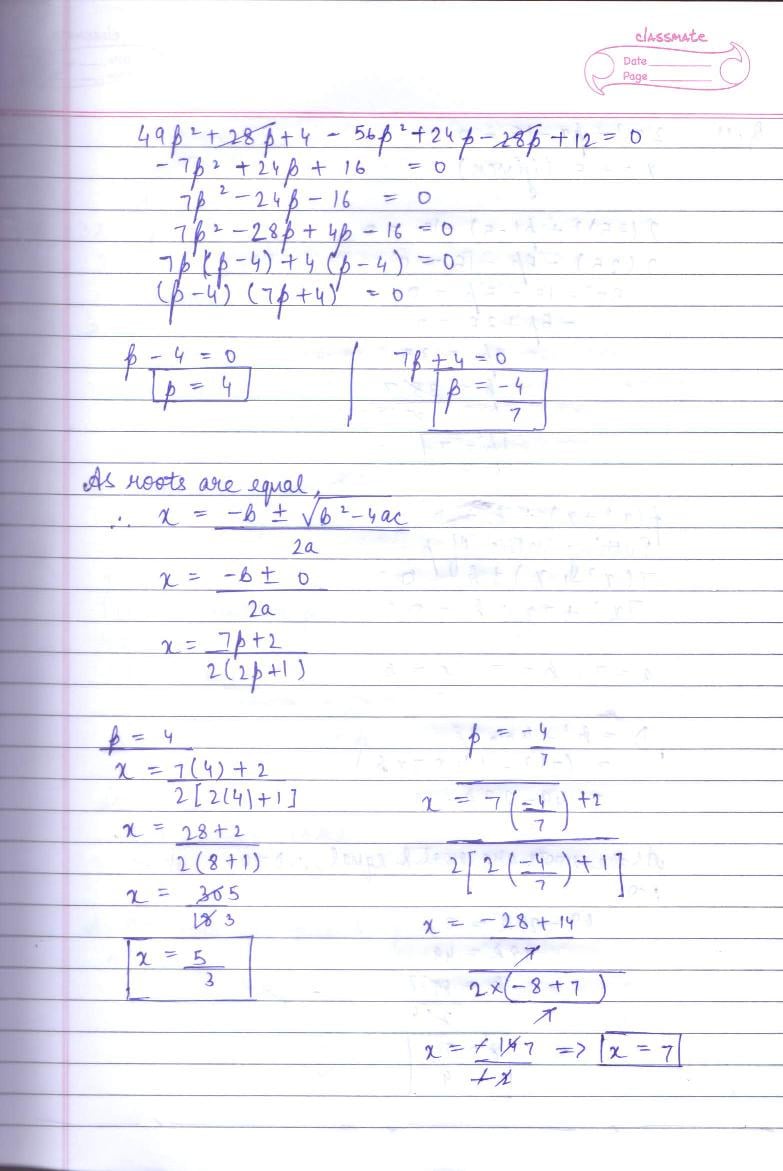 classmate
Date
Page
49p² + 28p + 4 - 56p² + 24p - 28p + 12 = 0
- 7p² + 24p + 16 = 0
7p² - 24p - 16 = 0
7p² - 28p + 4p - 16 = 0
7p (p-4) + 4 (p-4) = 0
(p-4) (7p+4) = 0
p - 4 = 0
p = 4
7p + 4 = 0
p = -4/7
As roots are equal,
∴ x = -b ± √b²-4ac
2a
x = -b ± 0
2a
x = 7p+2
2(2p+1)
p = 4
x = 7(4) + 2
2[2(4)+1]
x = 28+2
2(8+1)
x = 30 5
18 3
x = 5
3
p = -4
7
x = 7(-4/7) + 2
2[2(-4/7) + 1]
x = -28 + 14
7
2×(-8+7)
7
x = -14 7 => x = 7
-2